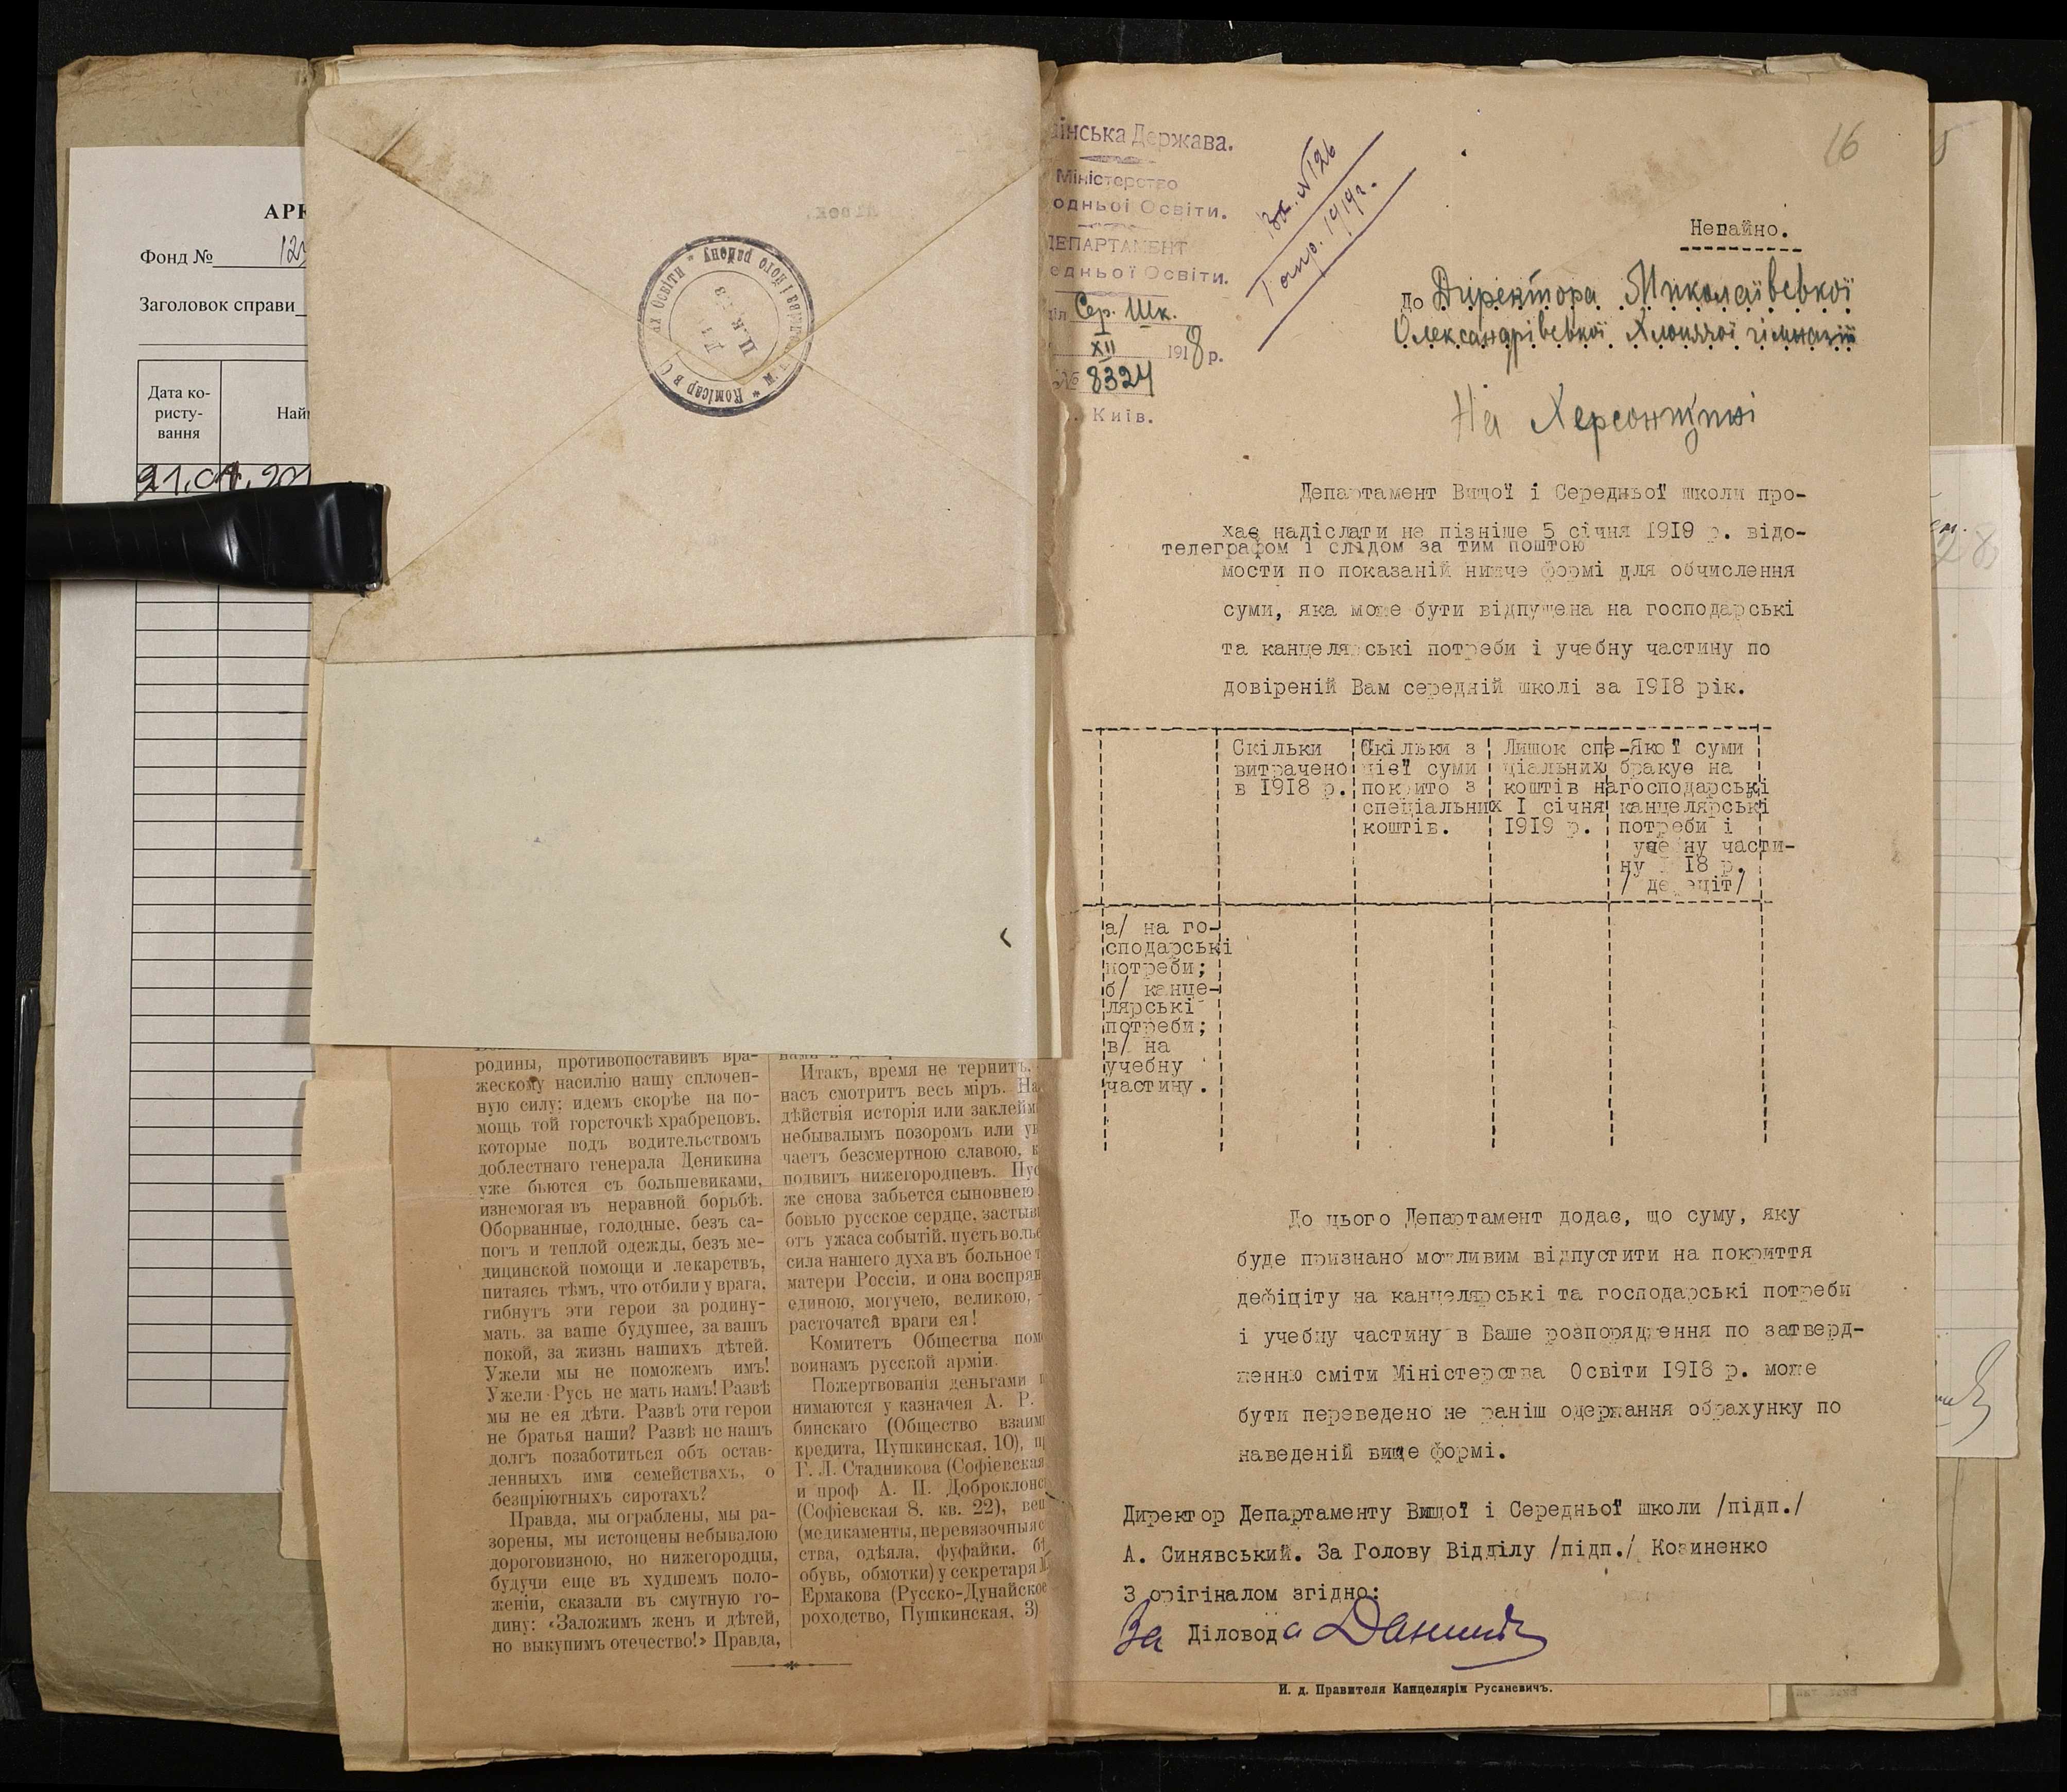 АРК
Фонд №
Заголовок справи
Дата ко-
ристу-
вання
Най
родины, противопоставивъ вра-
жескому насилію нашу сплочен-
ную силу; идемъ скорѣе на по-
мощь той горсточкѣ храбрецовъ,
которые подъ водительствомъ
доблестнаго генерала Деникина
уже бьются съ большевиками,
изнемогая въ неравной борьбѣ.
Оборванные, голодные, безъ са-
погъ и теплой одежды, безъ ме-
дицинской помощи и лекарствъ,
питаясь тѣмъ, что отбили у врага,
гибнутъ эти герои за родину-
мать, за ваше будущее, за вашъ
покой, за жизнь нашихъ дѣтей.
Ужели мы не поможемъ имъ!
Ужели Русь не мать намъ! Развѣ
мы не ея дѣти. Развѣ эти герои
не братья наши? Развѣ не нашъ
долгъ позаботиться объ остав-
ленныхъ ими семействахъ, о
безпріютныхъ сиротахъ?
Правда, мы ограблены, мы ра-
зорены, мы истощены небывалою
дороговизною, но нижегородцы,
будучи еще въ худшемъ поло-
женіи, сказали въ смутную го-
дину: «Заложимъ женъ и дѣтей,
но выкупимъ отечество!» Правда,
Итакъ, время не терпитъ.
насъ смотритъ весь міръ. На
дѣйствія исторія или заклейм
небывалымъ позоромъ или ув
чаетъ безсмертною славою, к
подвигъ нижегородцевъ. Пус
же снова забьется сыновнею
бовью русское сердце, застыв
отъ ужаса событій, пусть воль
сила нашего духа въ больное т
матери Россіи, и она воспрян
единою, могучею, великою,
расточатся враги ея!
Комитетъ Общества пом
воинамъ русской арміи.
Пожертвованія деньгами п
нимаются у казначея А. Р.
бинскаго (Общество взаим
кредита, Пушкинская, 10), п
Г. Л. Стадникова (Софіевская
и проф А. П. Доброклонс
(Софіевская 8, кв. 22), вещ
(медикаменты, перевязочныя с
ства, одѣяла, фуфайки, бѣ
обувь, обмотки) у секретаря
Ермакова (Русско-Дунайское
роходство, Пушкинская, 3)
їнська Держава.
Міністерство
одньоі Освіти.
ДЕПАРТАМЕНТ
едньоі Освіти.
діл Сер. Шк.
XII 1918 р.
№ 8324
Київ.
Вх. №126
1919г.
16
Негайно.
До Діректора Миколаївської
Олександрівської Хлопячої гімназії
На Херсонщині
Департамент Вищої і Середньої школи про-
хає надіслати не пізніше 5 січня 1919 р. відо-
телеграфом і слідом за тим поштою
мости по показаній нижче формі для обчислення
суми, яка може бути відпущена на господарські
та канцелярські потреби і учебну частину по
довіреній Вам середній школі за 1918 рік.
Скільки
витрачено
в 1918 р.
Скільки з
цієї суми
покрито з
спеціальних
коштів.
Лишок спе-
ціальних
коштів на
1 січня
1919 р.
Якої суми
бракує на
господарські
канцелярські
потреби і
учебну части-
ну 1918 р.
/ дефіціт/
а/ на го-
сподарські
потреби;
б/ канце-
лярські
потреби;
в/ на
учебну
частину.
До цього Департамент додає, що суму, яку
буде признано можливим відпустити на покриття
дефіціту на канцелярські та господарські потреби
і учебну частину в Ваше розпорядження по затверд-
женню сміти Міністерства Освіти 1918 р. може
бути переведено не раніш одержання обрахунку по
наведеній вище формі.
Директор Департаменту Вищої і Середньої школи /підп./
А. Синявський. За Голову Відділу /підп./ Козиненко
З орігіналом згідно:
За Діловода
И. д. Правителя Канцелярія Русаневичъ.